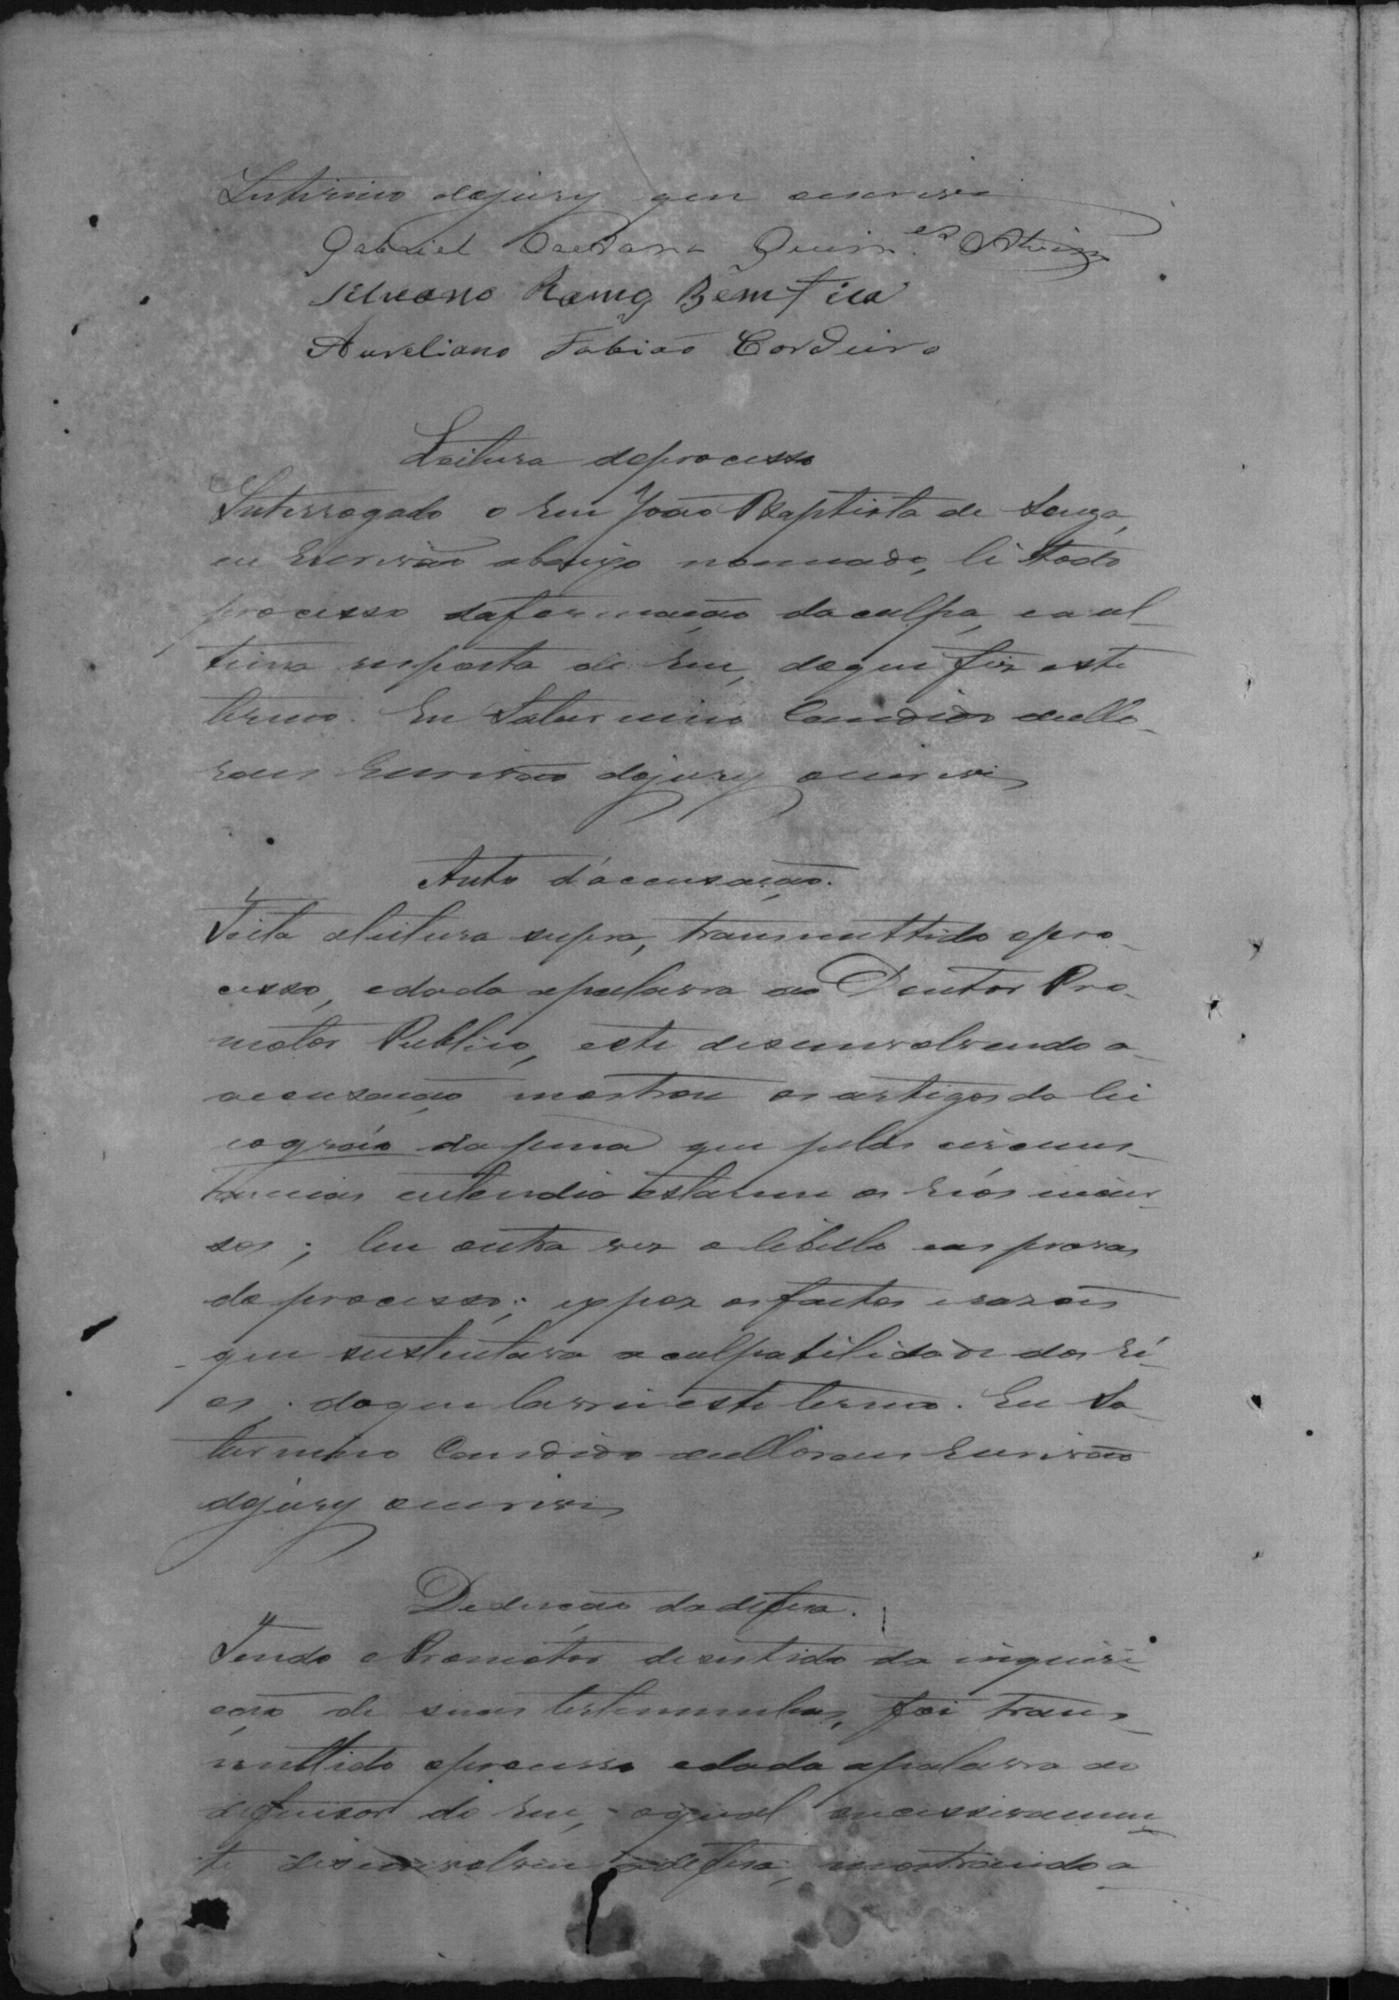 Interino do jury que escrevi
Gabriel Caetano
Silverio Ramos Bemfica
Aureliano Fabião Cordeiro
Leitura do processo
Interrogado o Reu João Baptista de Souza,
eu Escrivão abaixo nomeado, li todo
processo da formação da culpa, e a ul-
tima resposta do Reu, do que fiz este
termo. Eu Saturnino Candido
Escrivão do jury escrevi
Auto d'accusação.
Feita a leitura supra, transmettido o pro-
cesso, e dada a palavra ao Doutor Pro-
motor Publico, este desenvolvendo a
accusação mostrou os artigos da lei
e o gráo da pena que pelas circums-
tancias entendia estarem os Réos incur-
sos; leu outra vez o libello e as provas
do processo; expoz os factos e rasões
que sustentava a culpabilidade dos Ré-
os. do que lavrei este termo. Eu Sa-
turnino Candido Escrivão
do jury escrevi
Deducção da defesa.
Tendo o Promotor desistido da inquiri-
ção de suas testemunhas, foi trans-
mettido o processo e dada a palavra ao
defensor do Reu, o qual successivamen-
te desenvolveu a defesa, mostrando a